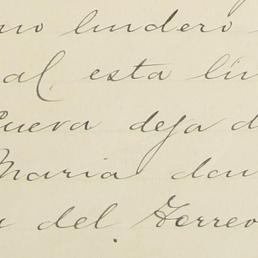 no lindero
al, esta lín
Cueva deja d
Maria don
a del Terreo